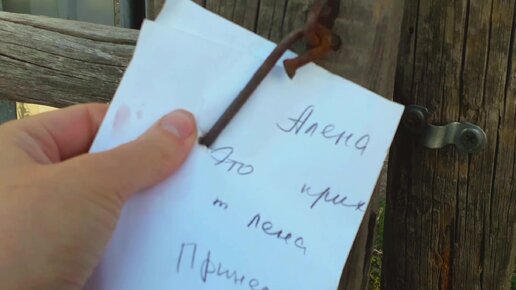 Алена
Это крик
т лена
Прине